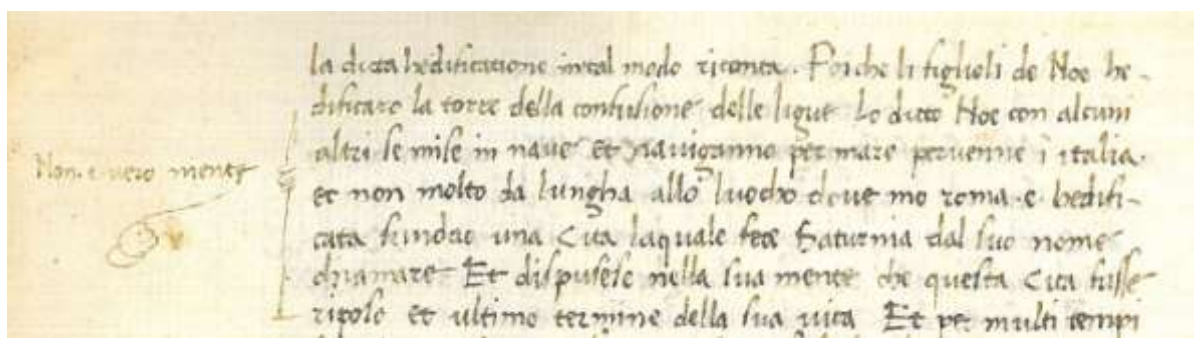 la dicta hedificatione in tal modo riconta. Poi che li figlioli de Noe he-
dificaro la torre della confusione delle ligue Lo dicto Noe con alcuni
altri se mise in nave et naviganno per mare pervenne ĩ italia.
Non. e vero mente
et non molto da lungha allo luocho dove mo roma. e. hedifi-
cata fundao una Cita laquale fece Saturnia dal suo nome
chiamare Et dispusese nella sua mente che questa Cita fusse
riposo et ultimo termine della sua vita Et per multi tempi